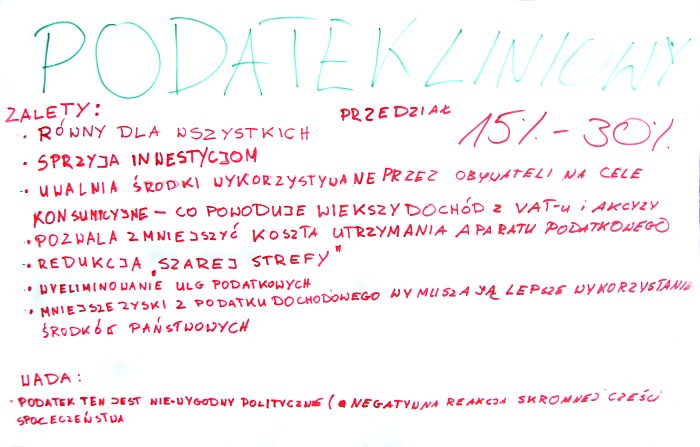 PODATEK LINIOWY
ZALETY:
PRZEDZIAŁ 15% - 30%
• RÓWNY DLA WSZYSTKICH
• SPRZYJA INWESTYCJOM
• UWALNIA ŚRODKI WYKORZYSTYWANE PRZEZ OBYWATELI NA CELE
KONSUMCYJNE – CO POWODUJE WIEKSZY DOCHÓD Z VAT-u i AKCYZY
• POZWALA ZMNIEJSZYĆ KOSZTA UTRZYMANIA APARATU PODATKOWEGO
• REDUKCJA „SZAREJ STREFY"
• WYELIMINOWANIE ULG PODATKOWYCH
• MNIEJSZE ZYSKI Z PODATKU DOCHODOWEGO WYMUSZAJĄ LEPSZE WYKORZYSTANIE
ŚRODKÓW PAŃSTWOWYCH
WADA:
• PODATEK TEN JEST NIE-WYGODNY POLITYCZNIE (• NEGATYWNA REAKCJA SKROMNEJ CZEŚCI
SPOŁECZEŃSTWA